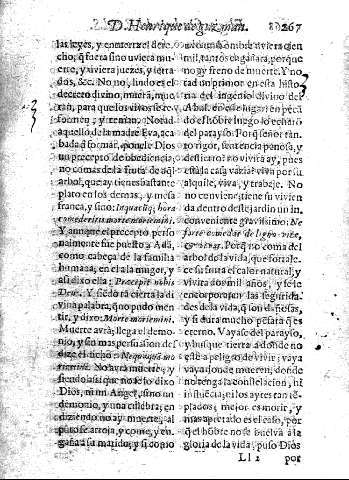 D. Henrique de guzmán. 267
las leyes, y enterrra el dere-
cho; q̃ fuera sino uviera mu-
erte, y uviera juezes, y ierra
dos, &c. No no, lindo es el
decreto divino, muera, mue-
ran, para que los vivos se re-
formen, y teman. Notad
aquello de la madre Eva, aca
bada de formar, ponele Dios
un precepto de obediencia,
no comas de la fruta de aql
arbol, que ay tienes bastante
plato en los demas, y mesa
franca, y fino: In quacũq; hora
comederitis morte moriemini.
Y aunque el precepto perso-
nalmente fue puesto a Adã,
como cabeça de la familia
humana, en el a la muger, y
assi dixo ella: Precepit nobis
Deus. Y siẽdo tã cierta la di-
vina palabra, q̃ no pudo men
tir, y dixo: Morte moriemini.
Muerte avrà; llega el demo-
nio, y en su persuasion des
dize el dicho: Nequaquã mo
riemini. No avrà muerte; y
siendo assi que no lo dixo
Dios, ni un Angel, sino un
demonio, y una culebra; en
diziendo no ay muerte, al
punto se arroja, y come, y en-
gaña a su marido; y si como
un solo hombre viviera cien
mil, tantos engañara, porque
no ay freno de muerte. Y no
tad un primor en esta histo
ria del ingenio divino del
Abul. en este lugar: en pecã
do el hõbre luego lo echarõ
del parayso. Por señor tan-
to rigor, sentencia penosa, y
destierro? no vivirà ay, pues
està la casa varia? viva por su
alquile, viva, y trabaje. No
no conviene; tiene su vivien
da dentro deste jardin un in-
conveniente gravissimo: Ne
forte comedat de ligno vitæ,
et vivat. Porq̃ no coma del
arbol de la vida, que fortale-
ce su fruta el calor natural, y
vivirà dos mil años, y se le
encorporan las seguridades
de la vida, q̃ son diñosas,
y si dura mucho pesarà q̃ es
eterno. Vaya se del parayso,
y busque tierra adonde no
esté a peligro de vivir; vaya
vaya donde mueren, donde
no tenga la constelacion, ni
influecia; ni los ayres tan tẽ-
plados; mejor es morir, y
mas apretado es el caso, por
que el hõbre no se buelva a la
gloria de la vida, puso Dios
Ll 2 por